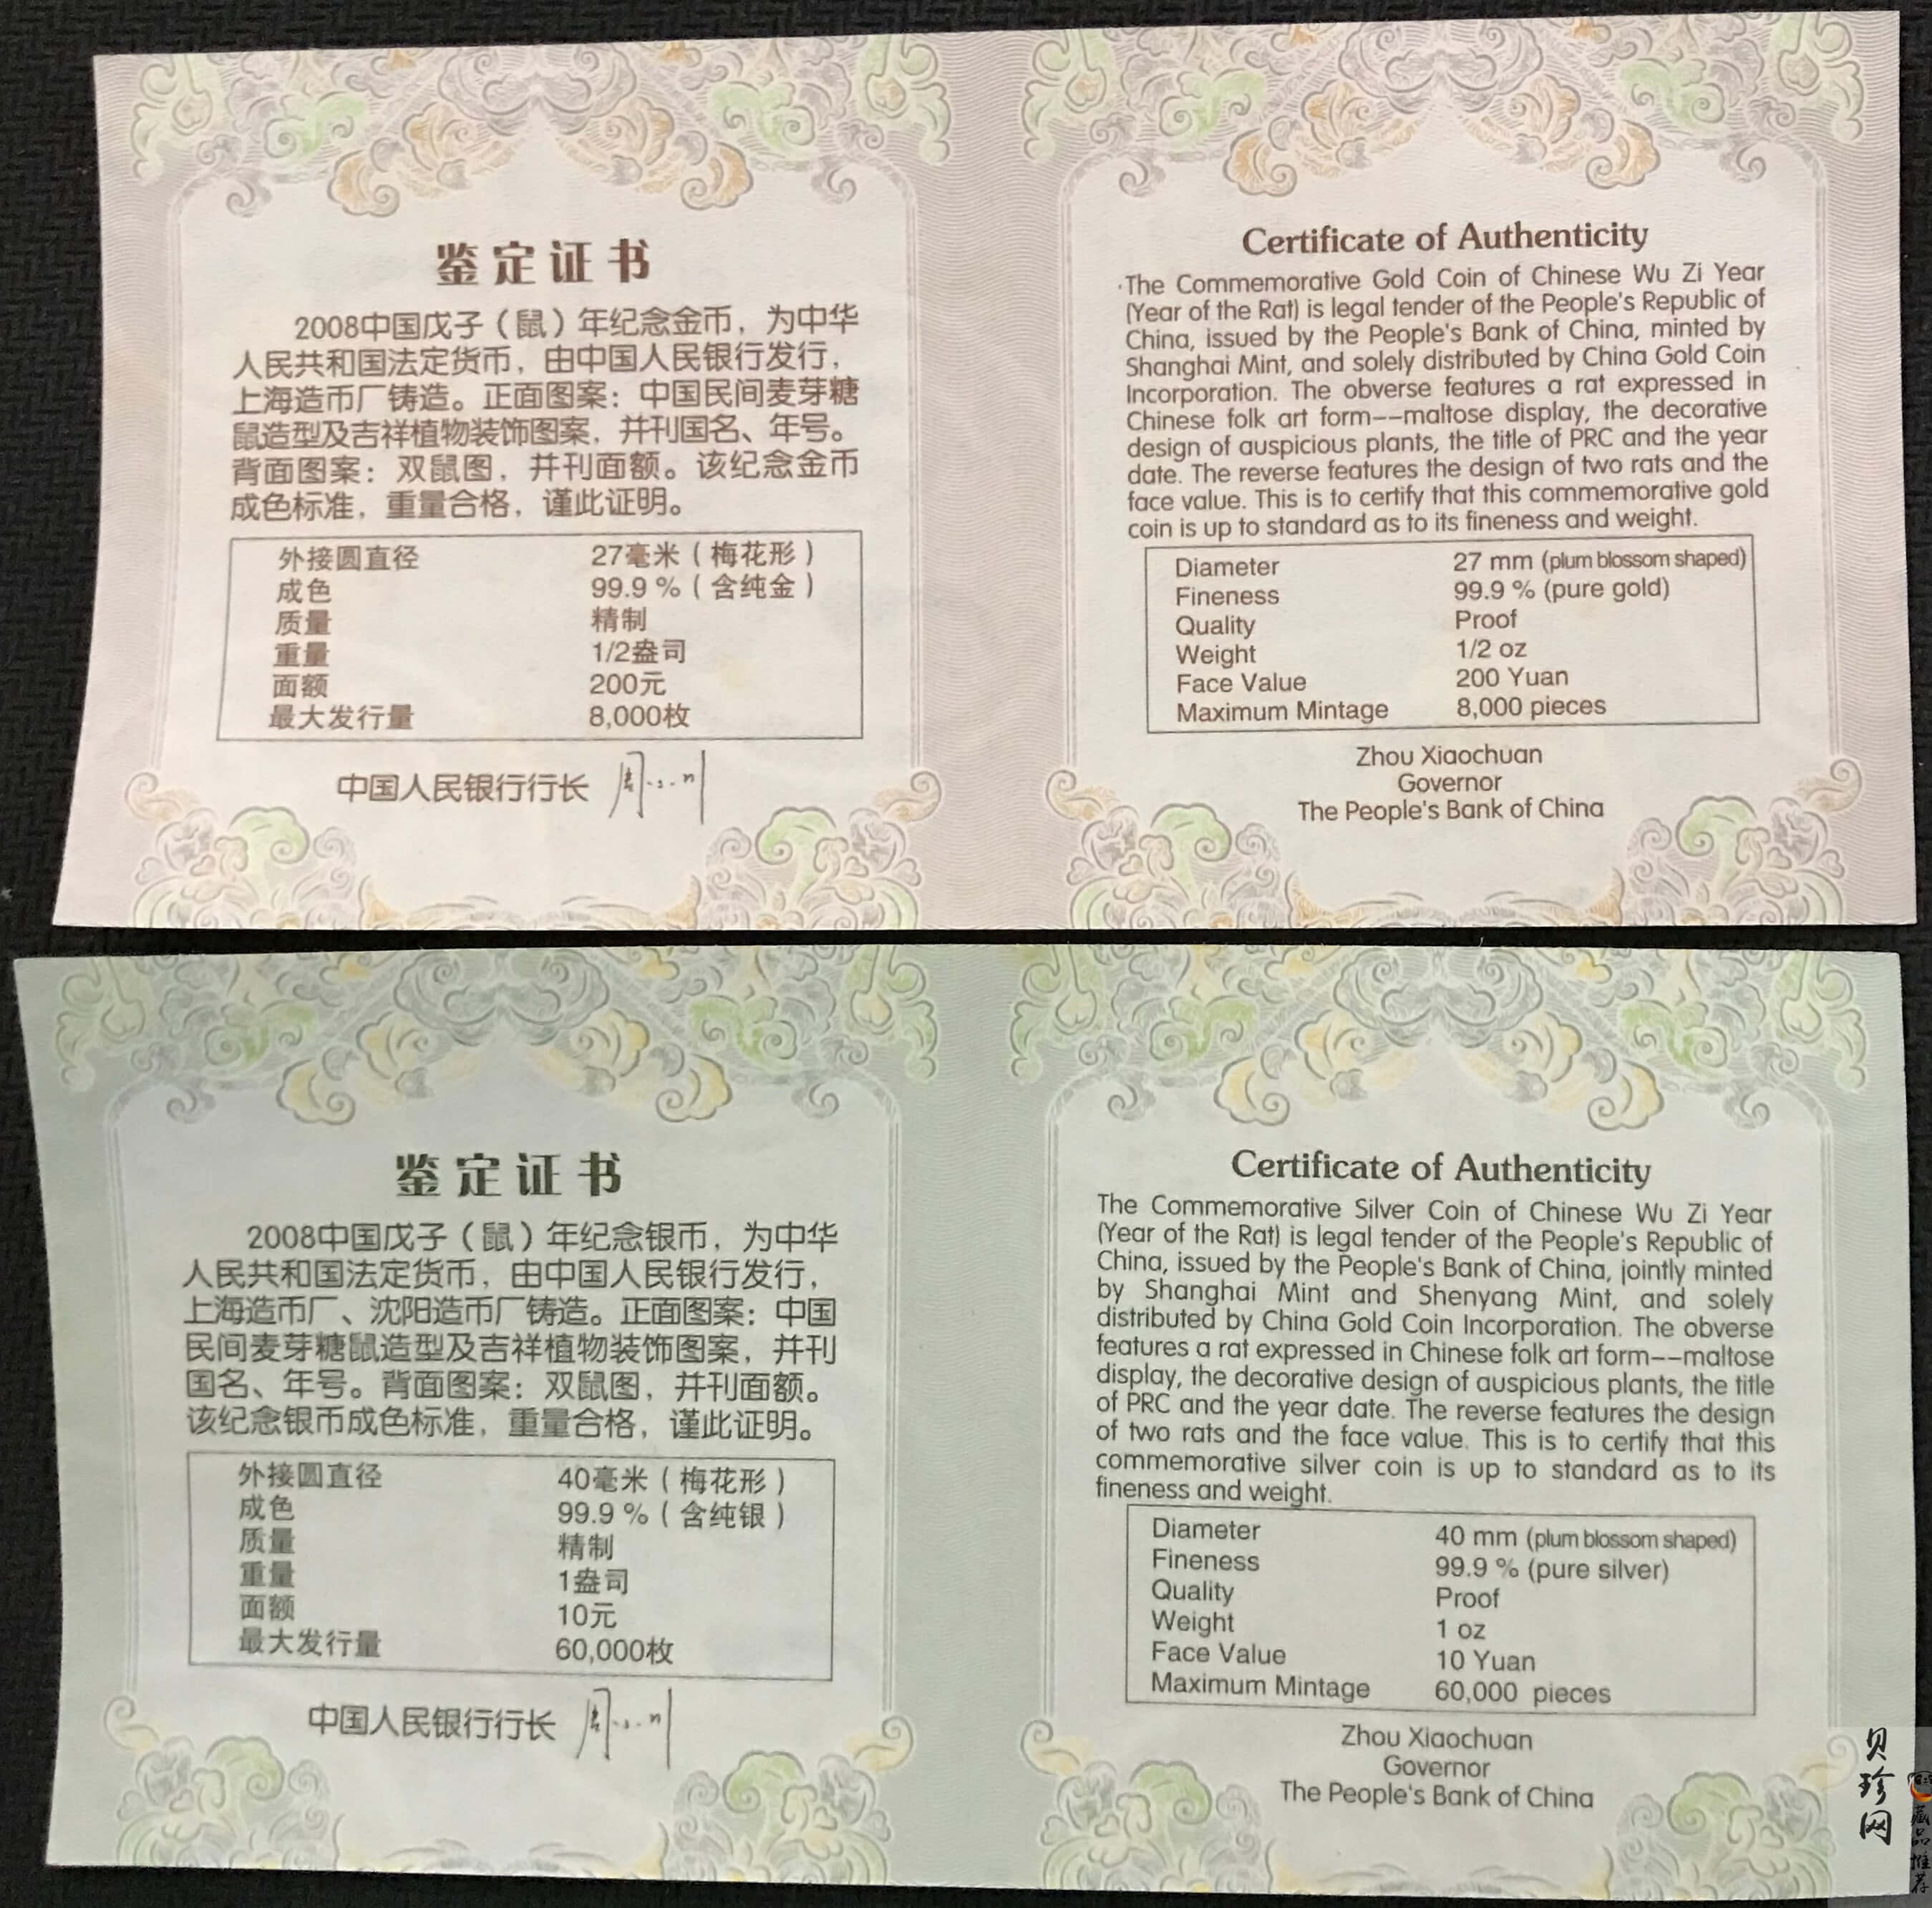 鉴定证书
2008中国戊子（鼠）年纪念金币，为中华
人民共和国法定货币，由中国人民银行发行，
上海造币厂铸造。正面图案：中国民间麦芽糖
鼠造型及吉祥植物装饰图案，并刊国名、年号。
背面图案：双鼠图，并刊面额。该纪念金币
成色标准，重量合格，谨此证明。
外接圆直径 27毫米（梅花形）
成色 99.9％（含纯金）
质量 精制
重量 1/2盎司
面额 200元
最大发行量 8,000枚
中国人民银行行长 周小川
Certificate of Authenticity
The Commemorative Gold Coin of Chinese Wu Zi Year
(Year of the Rat) is legal tender of the People's Republic of
China, issued by the People's Bank of China, minted by
Shanghai Mint, and solely distributed by China Gold Coin
Incorporation. The obverse features a rat expressed in
Chinese folk art form--maltose display, the decorative
design of auspicious plants, the title of PRC and the year
date. The reverse features the design of two rats and the
face value. This is to certify that this commemorative gold
coin is up to standard as to its fineness and weight.
Diameter 27 mm (plum blossom shaped)
Fineness 99.9 % (pure gold)
Quality Proof
Weight 1/2 oz
Face Value 200 Yuan
Maximum Mintage 8,000 pieces
Zhou Xiaochuan
Governor
The People's Bank of China
鉴定证书
2008中国戊子（鼠）年纪念银币，为中华
人民共和国法定货币，由中国人民银行发行，
上海造币厂、沈阳造币厂铸造。正面图案：中国
民间麦芽糖鼠造型及吉祥植物装饰图案，并刊
国名、年号。背面图案：双鼠图，并刊面额。
该纪念银币成色标准，重量合格，谨此证明。
外接圆直径 40毫米（梅花形）
成色 99.9％（含纯银）
质量 精制
重量 1盎司
面额 10元
最大发行量 60,000枚
中国人民银行行长 周小川
Certificate of Authenticity
The Commemorative Silver Coin of Chinese Wu Zi Year
(Year of the Rat) is legal tender of the People's Republic of
China, issued by the People's Bank of China, jointly minted
by Shanghai Mint and Shenyang Mint, and solely
distributed by China Gold Coin Incorporation. The obverse
features a rat expressed in Chinese folk art form--maltose
display, the decorative design of auspicious plants, the title
of PRC and the year date. The reverse features the design
of two rats and the face value. This is to certify that this
commemorative silver coin is up to standard as to its
fineness and weight.
Diameter 40 mm (plum blossom shaped)
Fineness 99.9 % (pure silver)
Quality Proof
Weight 1 oz
Face Value 10 Yuan
Maximum Mintage 60,000 pieces
Zhou Xiaochuan
Governor
The People's Bank of China
贝珍网
藏品推荐